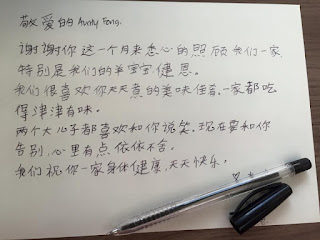 敬爱的 Aunty Fong.
谢谢你这一个月来悉心的照顾我们一家
特别是我们的羊宝宝健恩。
我们很喜欢你天天煮的美味佳肴.一家都吃
得津津有味。
两个大儿子都喜欢和你说笑.现在要和你
告别.心里有点依依不舍。
我们祝你一家身体健康.天天快乐,